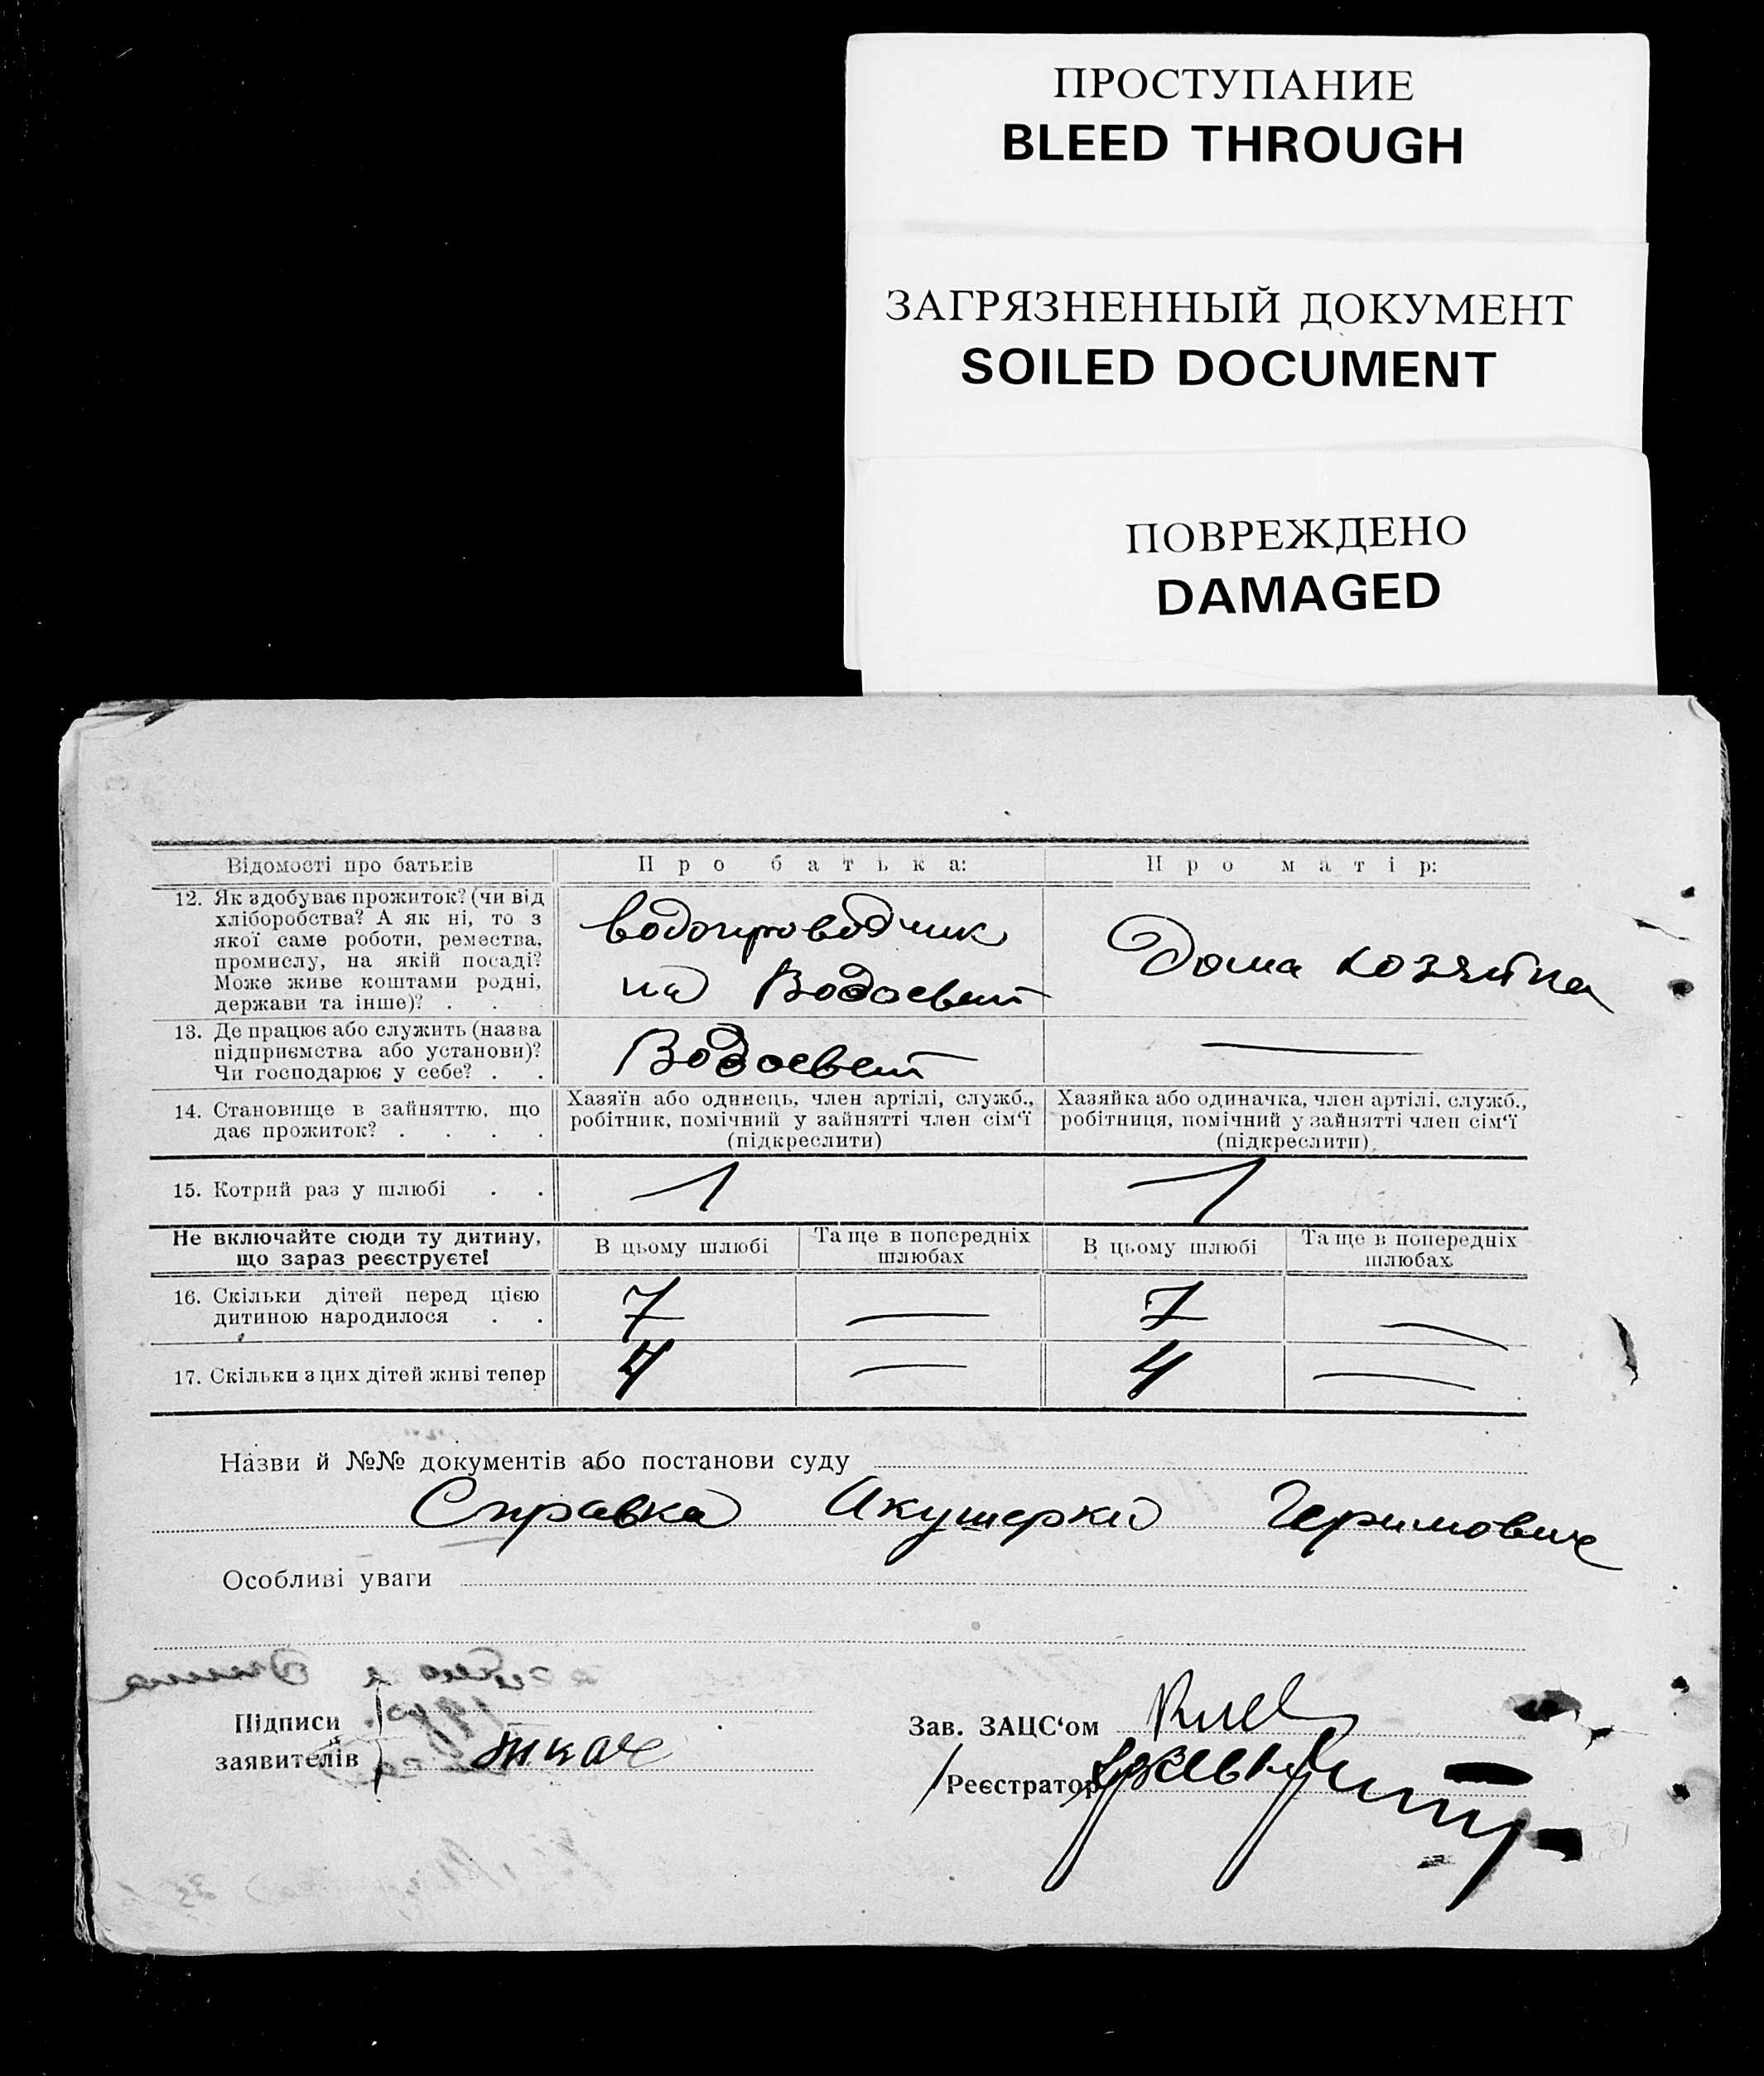 ПРОСТУПАНИЕ
BLEED THROUGH
ЗАГРЯЗНЕННЫЙ ДОКУМЕНТ
SOILED DOCUMENT
ПОВРЕЖДЕНО
DAMAGED
Відомості про батьків
Про батька:
Про матір:
12. Як здобуває прожиток? (чи від
хліборобства? А як ні, то з
якої саме роботи, ремества,
промислу, на якій посаді?
Може живе коштами родні,
держави та інше)? . . .
водопроводчик
на Водосвет
Дома хозяйка
13. Де працює або служить (назва
підприємства або установи)?
Чи господарює у себе? . .
Водосвет
—
14. Становище в зайняттю, що
дає прожиток? . . . .
Хазяїн або одинець, член артілі, служб.,
робітник, помічний у зайнятті член сім‘ї
(підкреслити)
Хазяйка або одиначка, член артілі, служб.,
робітниця, помічний у зайнятті член сім‘ї
(підкреслити).
15. Котрий раз у шлюбі . .
1
1
Не включайте сюди ту дитину,
що зараз реєструєте!
В цьому шлюбі
Та ще в попередніх
шлюбах
В цьому шлюбі
Та ще в попередніх
шлюбах.
16. Скільки дітей перед цією
дитиною народилося . .
7
—
7
—
17. Скільки з цих дітей живі тепер
4
—
4
—
Назви й №№ документів або постанови суду
Справка Акушерки
Особливі уваги
Підписи
заявителів
ткач
Зав. ЗАЦС‘ом
Реєстратор